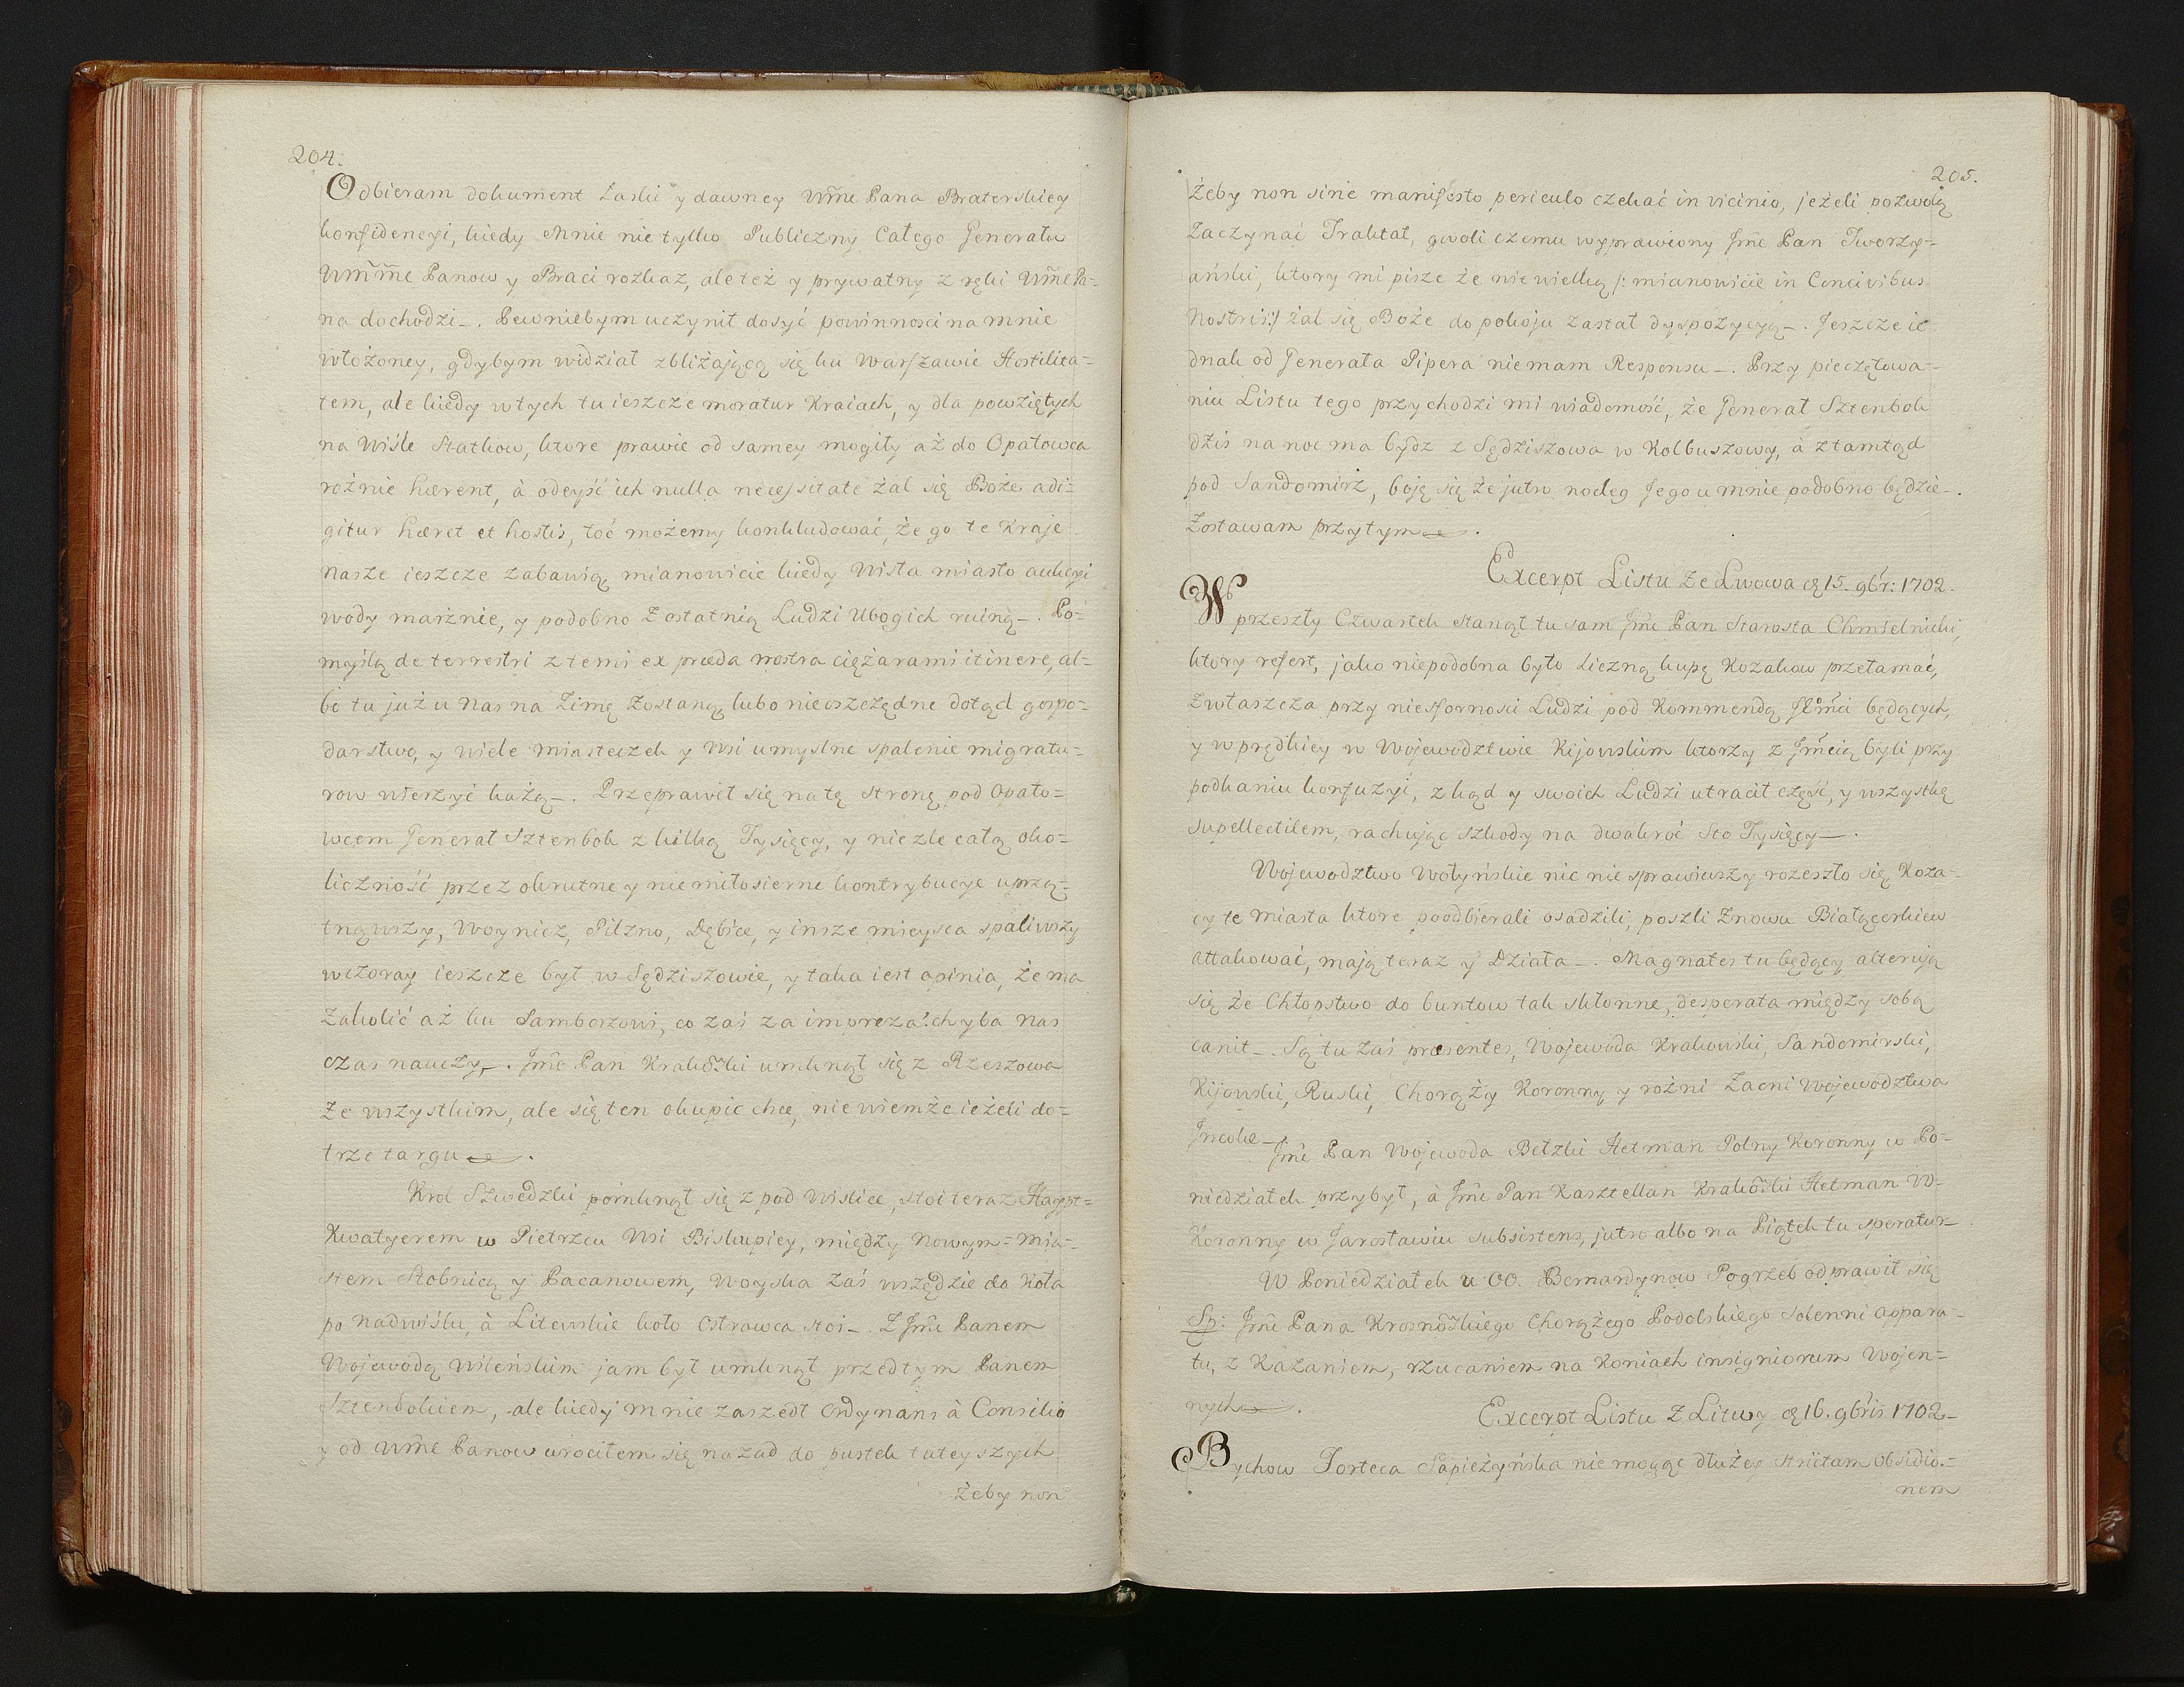 204.
Odbieram dokument Łaski y dawney Wm̃e Pana Braterskiey
konfidencyi, kiedy Mnie nie tylko Publiczny Całego Generału
Wm̃m̃e Panow y Braci rozkaz, ale też y prywatny z ręki Wm̃e Pa=
na dochodzi_. Pewniebym uczynił dosyć powinnosci na mnie
włożoney, gdybym widział zbliżającą się ku Warszawie Hostilita=
tem, ale kiedy w tych tu ieszcze moratur Kraiach, y dla powziętych
na Wiśle Statkow, ktore prawie od samey mogiły aż do Opatowca
rożnie hærent, à odeyść ich nulla necessitate żal się Boże adi=
gitur hæret et hostis, toć możemy konkludować, że go te Kraje
nasze ieszcze zabawią, mianowicie kiedy Wisła miasto aukcyi
wody marznie, y podobno z ostatnią Ludzi Ubogich ruiną_. Po=
myślą de terrestri z temi ex præda nostra ciężarami itinere, al=
bo tu już u Nas na Zimę zostaną, lubo nieoszczędne dotąd gospo=
darstwo, y wiele miasteczek y Wsi umyslne spalenie migratu=
row wierzyć każą_. Przeprawił się na tę stronę pod Opato=
wcem Generał Sztenbok z kilką Tysięcy, y nie źle całą oko=
liczność przez okrutne y niemiłosierne kontrybucye uprzą=
tnąwszy, Woynicz, Pilzno, Dębice, y insze mieysca spaliwszy
wczoray ieszcze był w Sędziszowie, y taka iest opinia, że ma
zakolić aż ku Samborowi, co zaś za impreza? chyba nas
czas nauczy_. Jm̃c Pan Krakõski umknął się z Rzeszowa
ze wszystkim, ale się ten okupic chce, nie wiem że ieżeli do=
trze targu.
Krol Szwedzki pomknął się z pod Wislice, stoi teraz Haupt=
Kwatyerem w Pietrzcu Wsi Biskupiey, między Nowym=mia=
stem Stobnicą y Pacanowem, Woyska zaś wszędzie do koła
po nadwiślu, à Litewskie koło Ostrowca stoi_. Z Jm̃c Panem
Wojewodą Wileńskim jam był umknął przed tym Panem
Sztenbokiem, ale kiedy mnie zaszedł Ordynans à Consilio
y od Wm̃e Panow wrocitem się nazad do pustek tuteyszych
żeby non
205.
żeby non sine manifesto periculo czekać in vicinio, jeżeli pozwolą
zaczynać Traktat, gwoli czemu wyprawiony Jm̃c Pan Tworzy=
ański, ktory mi pisze że nie wielką /: mianowicie in Concivibus
Nostris :/ żal się Boże do pokoju zastał dyspozycyą_. Jeszcze ie=
dnak od Generała Pipera niemam Responsu_. Przy pieczętowa=
niu Listu tego przychodzi mi wiadomość, że Generał Sztenbok
dziś na noc ma bydz z Sędziszowa w Kolbuszowy, à ztamtąd
pod Sandomirz, boję się że jutro nocleg Jego u mnie podobno będzie_.
Zostawam przytym.
Excerpt Listu ze Lwowa d. 15. 9br: 1702.
W przeszły Czwartek stanął tu sam Jm̃c Pan Starosta Chmielnicki,
ktory refert, jako niepodobna było liczną kupę Kozakow przełamać,
zwłaszcza przy niesfornosci Ludzi pod Kommendą Jm̃ci będących,
y w prędkiey w Wojewodztwie Kijowskim ktorzy z Jm̃cią byli przy
podkaniu konfuzyi, zkąd y swoich Ludzi utracił część, y wszystkę
supellectilem, rachując szkody na dwakroć Sto Tysięcy_.
Wojewodztwo Wołyńskie nic nie sprawiwszy rozeszło się, Koza=
cy te miasta ktore poodbierali osadzili, poszli znowu Białącerkiew
attakować, mają teraz y Działa_. Magnates tu będący alterują
się że Chłopstwo do buntow tak skłonne, desperata między sobą
canit_. Są tu zaś præsentes, Wojewoda Krakowski, Sandomirski,
Kijowski, Ruski, Chorąży Koronny y rożni Zacni Wojewodztwa
Incolæ_
Jm̃c Pan Wojewoda Bełzki Hetman Polny Koronny w Po=
niedziałek przybył, à Jm̃c Pan Kasztellan Krakõski Hetman W=
Koronny w Jarosławiu subsistens, jutro albo na Piątek tu speratur_
W Poniedziałek u OO. Bernardynow Pogrzeb odprawił się
Sp: Jm̃c Pana Krosnõskiego Chorążego Podolskiego solenni appara=
tu, z Kazaniem, rzucaniem na koniach insigniorum Wojen=
nych.
Excerpt Listu z Litwy d. 16. 9bris 1702_
Bychow Forteca Sapieżyńska nie mogąc dłużey strictam Obsidio=
nem